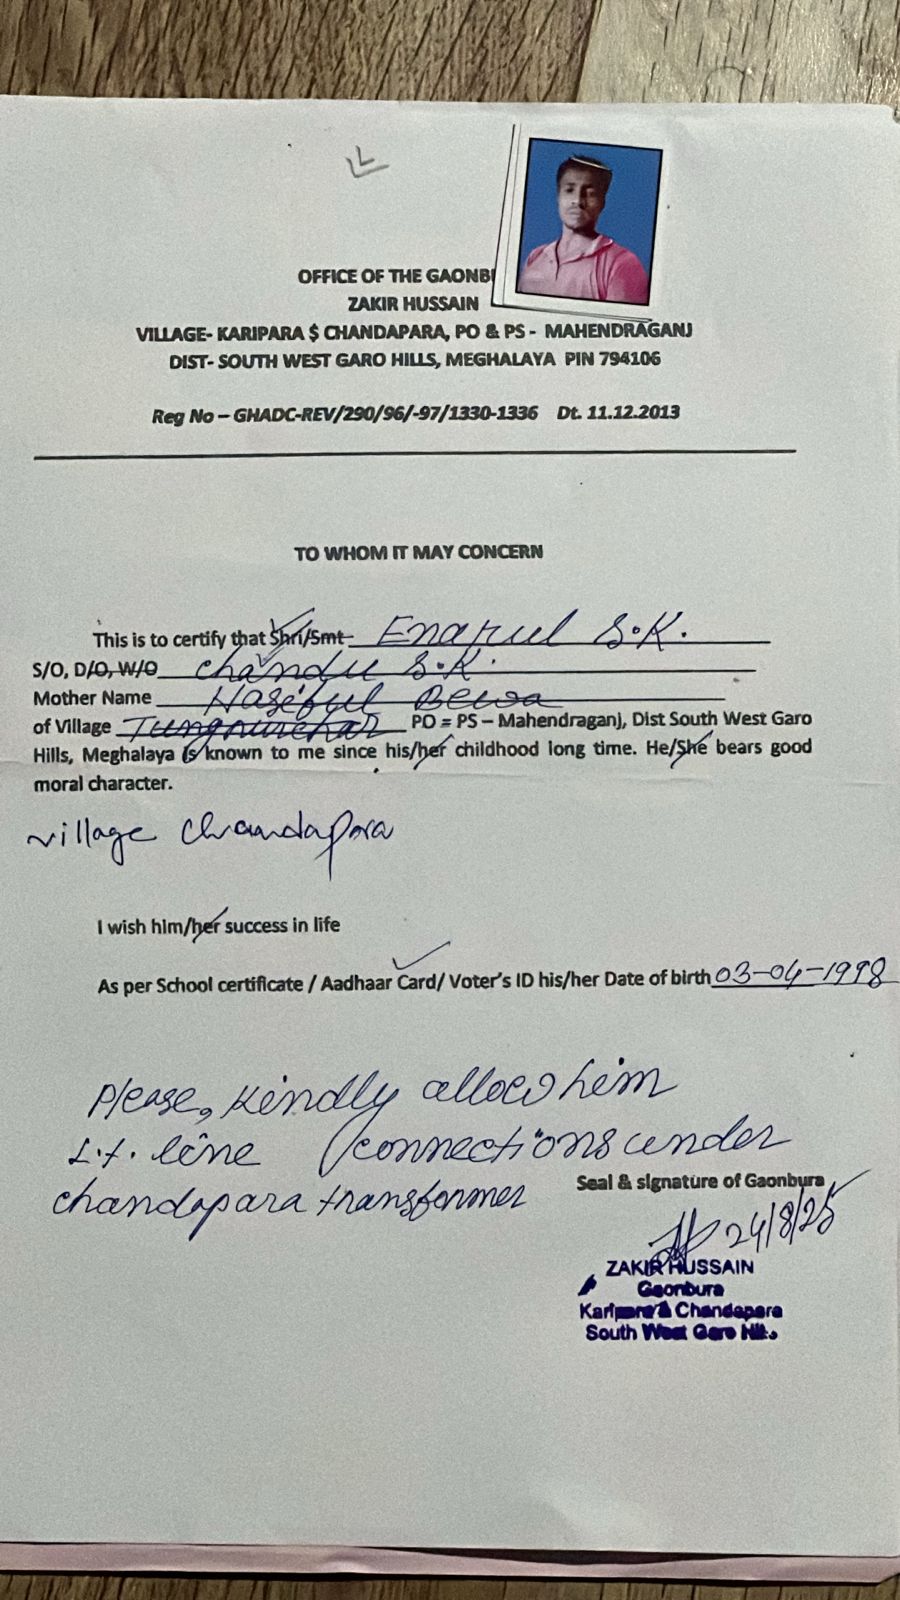 OFFICE OF THE GAONB
ZAKIR HUSSAIN
VILLAGE- KARIPARA $ CHANDAPARA, PO & PS - MAHENDRAGANJ
DIST- SOUTH WEST GARO HILLS, MEGHALAYA PIN 794106
Reg No – GHADC-REV/290/96/-97/1330-1336 Dt. 11.12.2013
TO WHOM IT MAY CONCERN
This is to certify that Shri/Smt Enarul S.K.
S/O, D/O, W/O Chandu S.K.
Mother Name Haseful Bewa
of Village PO = PS – Mahendraganj, Dist South West Garo
Hills, Meghalaya is known to me since his/her childhood long time. He/She bears good
moral character.
village Chandapara
I wish him/her success in life
As per School certificate / Aadhaar Card/ Voter's ID his/her Date of birth 03-04-1998
Please, kindly allow him
L.t. line connections under
chandapara transformer
Seal & signature of Gaonbura
24/8/25
ZAKIR HUSSAIN
Gaonbura
Karipara & Chandapara
South West Garo Hills